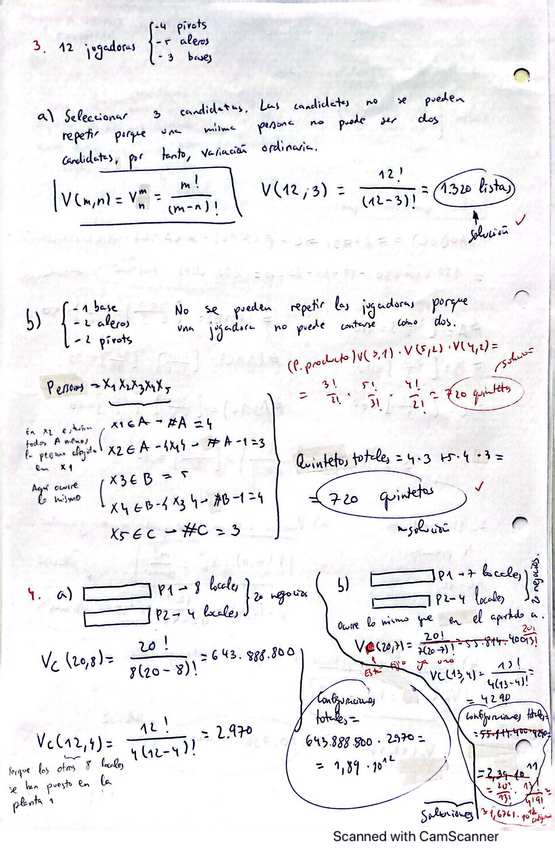 3. 12 jugadoras
- 4 pivots
- 5 aleros
- 3 bases
a) Seleccionar 3 candidatas. Las candidatas no se pueden
repetir porque una misma persona no puede ser dos
candidatas, por tanto, variación ordinaria.
V(m,n) = V^m_n = m! / (m-n)!
V(12,3) = 12! / (12-3)! = 1320 listas
solución ✓
b)
- 1 base
- 2 aleros
- 2 pivots
No se pueden repetir las jugadoras porque
una jugadora no puede contarse como dos.
(P. producto) V(3,1) · V(5,2) · V(4,2) =
= 3!/2! · 5!/3! · 4!/2! = 720 quintetos
solución
Personas = X1 X2 X3 X4 X5
X1 ∈ A → #A = 4
X2 ∈ A - {X1} → #A-1 = 3
X3 ∈ B = 5
X4 ∈ B - {X3} → #B-1 = 4
X5 ∈ C → #C = 3
En X2 están
todos A menos
la persona elegida
en X1
Aquí ocurre
lo mismo
Quintetos totales = 4·3·5·4·3 =
= 720 quintetos ✓
solución
4. a)
P1 → 8 locales
P2 → 4 locales
20 negocios
Vc (20,8) = 20! / 8(20-8)! = 643.888.800
Vc (12,4) = 12! / 4(12-4)! = 2.970
Porque los otros 8 locales
se han puesto en la
planta 1
Configuraciones
totales =
643.888.800 · 2970 =
= 1,89 · 10^12
b)
P1 → 7 locales
P2 → 4 locales
20 negocios
Ocurre lo mismo que en el apartado a.
Vc (20,7) = 20! / 7(20-7)! = 55.814.400
20! / 13!
Vc (13,4) = 13! / 4(13-4)! =
= 4290
Configuraciones totales =
= 2,39 · 10^11
= 20!/13! · 13!/4!9! =
Soluciones
Scanned with CamScanner